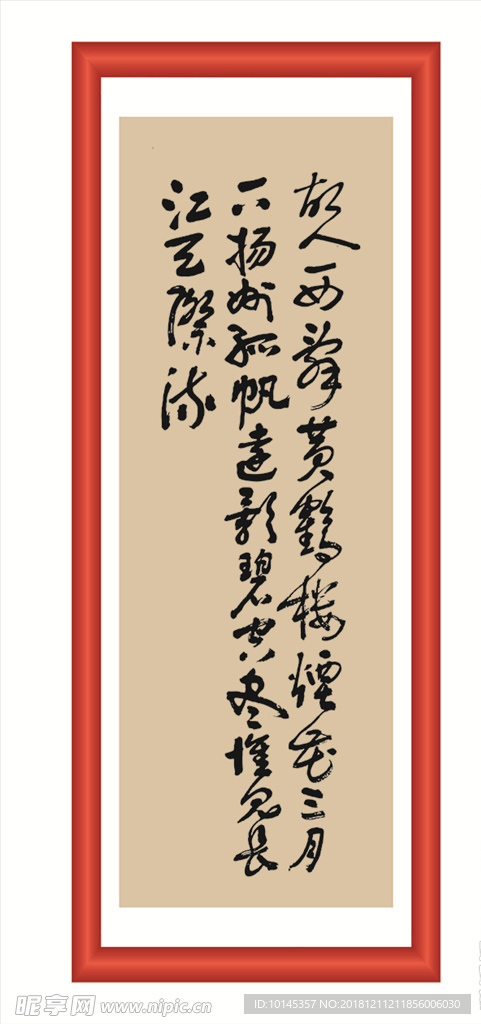 故人西辞黄鹤楼煙花三月
下扬州孤帆远影碧空尽惟见长
江天际流
昵享网 www.nipic.cn
ID:10145357 NO:20181211211856006030